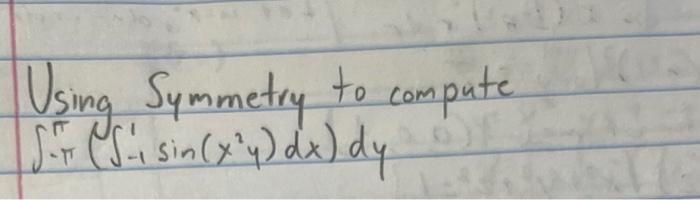 Using Symmetry to compute
∫_{-π}^{π} (∫_{-1}^{1} sin(x²y) dx) dy